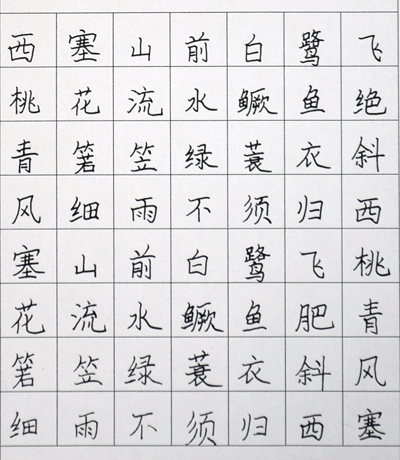 西塞山前白鹭飞
桃花流水鳜鱼绝
青箬笠绿蓑衣斜
风细雨不须归西
塞山前白鹭飞桃
花流水鳜鱼肥青
箬笠绿蓑衣斜风
细雨不须归西塞